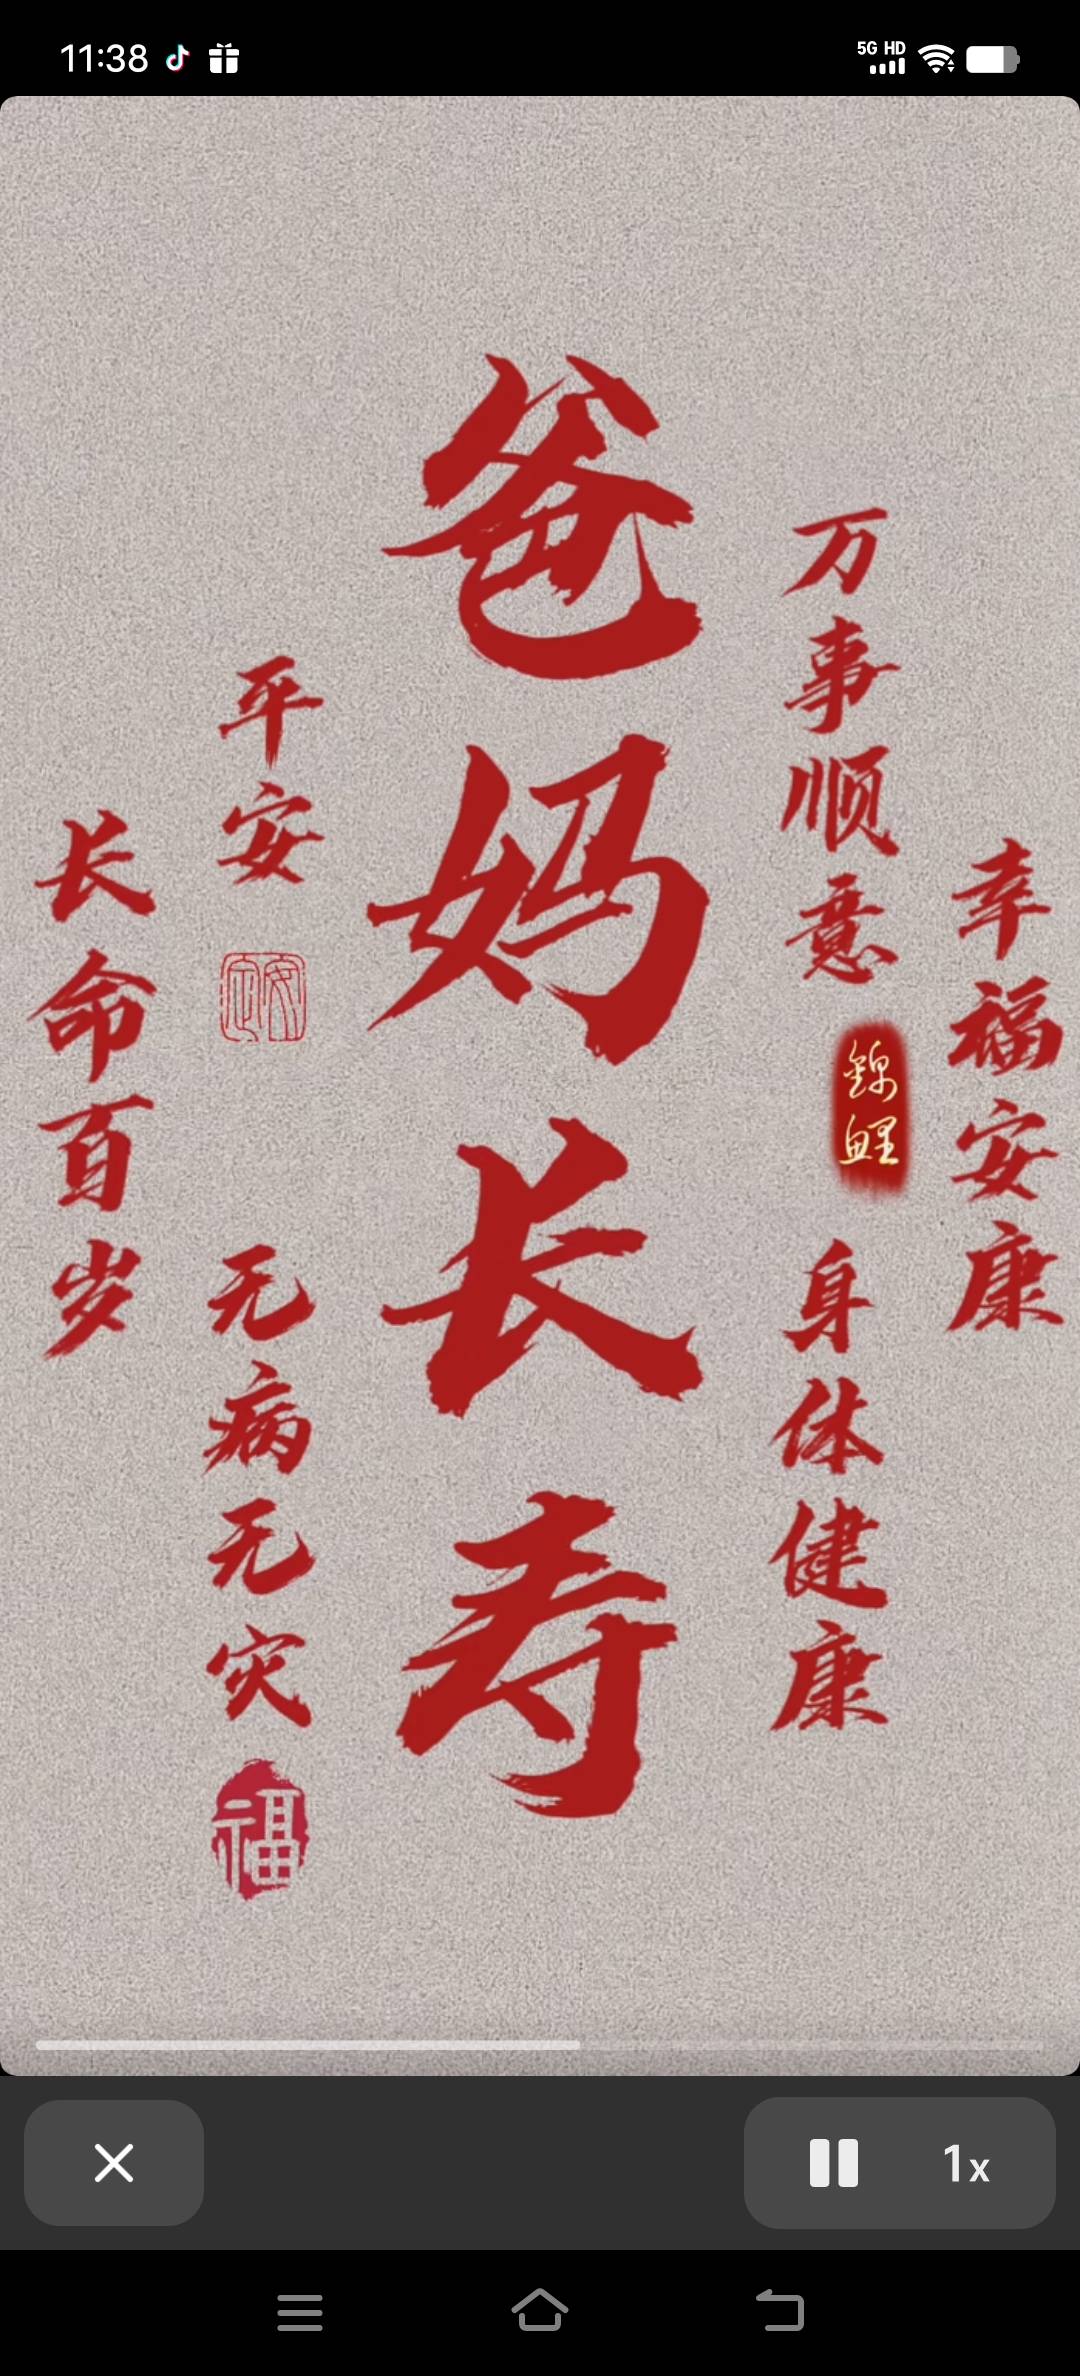 11:38
5G HD
幸福安康
万事顺意
錦鲤
身体健康
爸妈长寿
平安
无病无灾
福
长命百岁
1x